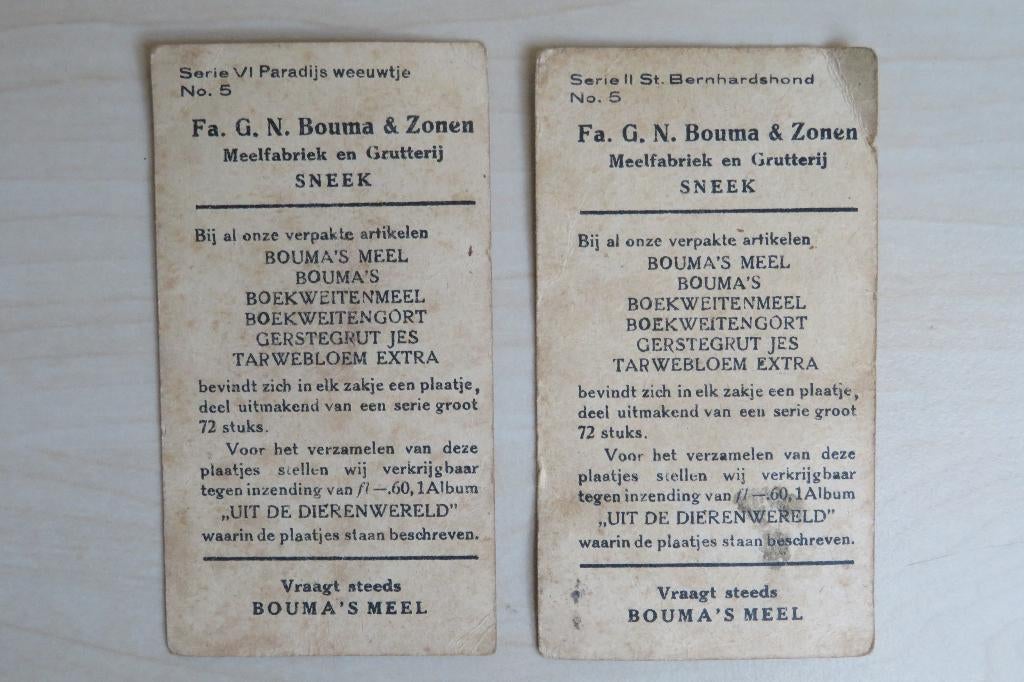 Serie VI Paradijs weeuwtje
No. 5
Fa. G. N. Bouma & Zonen
Meelfabriek en Grutterij
SNEEK
Bij al onze verpakte artikelen
BOUMA'S MEEL
BOUMA'S
BOEKWEITENMEEL
BOEKWEITENGORT
GERSTEGRUT JES
TARWEBLOEM EXTRA
bevindt zich in elk zakje een plaatje,
deel uitmakend van een serie groot
72 stuks.
Voor het verzamelen van deze
plaatjes stellen wij verkrijgbaar
tegen inzending van fl —.60, 1 Album
„UIT DE DIERENWERELD”
waarin de plaatjes staan beschreven.
Vraagt steeds
BOUMA'S MEEL
Serie II St. Bernhardshond
No. 5
Fa. G. N. Bouma & Zonen
Meelfabriek en Grutterij
SNEEK
Bij al onze verpakte artikelen
BOUMA'S MEEL
BOUMA'S
BOEKWEITENMEEL
BOEKWEITENGORT
GERSTEGRUT JES
TARWEBLOEM EXTRA
bevindt zich in elk zakje een plaatje,
deel uitmakend van een serie groot
72 stuks.
Voor het verzamelen van deze
plaatjes stellen wij verkrijgbaar
tegen inzending van fl —.60, 1 Album
„UIT DE DIERENWERELD”
waarin de plaatjes staan beschreven.
Vraagt steeds
BOUMA'S MEEL